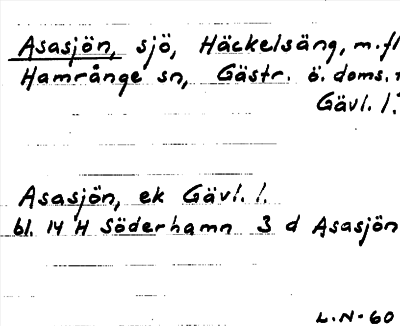 Asasjön, sjö, Häckelsäng, m.fl
Hamrånge sn, Gästr. ö. doms.
Gävl. l.
Asasjön, ek Gävl. l.
bl. 14 H Söderhamn 3 d Asasjön
L.N-60